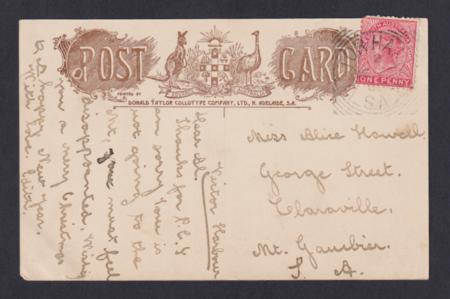 POST CARD
PRINTED BY
DONALD TAYLOR COLLOTYPE COMPANY, LTD., N. ADELAIDE, S.A.
ONE PENNY
S.A
Miss Alice Howell
George Street.
Claraville.
Mt. Gambier.
S. A.
Victor Harbour
Dear Al.
Thanks for P.C.s
am sorry you is
not going to the
Mt, you must feel
disappointed. Wishing
you a merry Christmas
& a happy New Year.
With love. Edith.